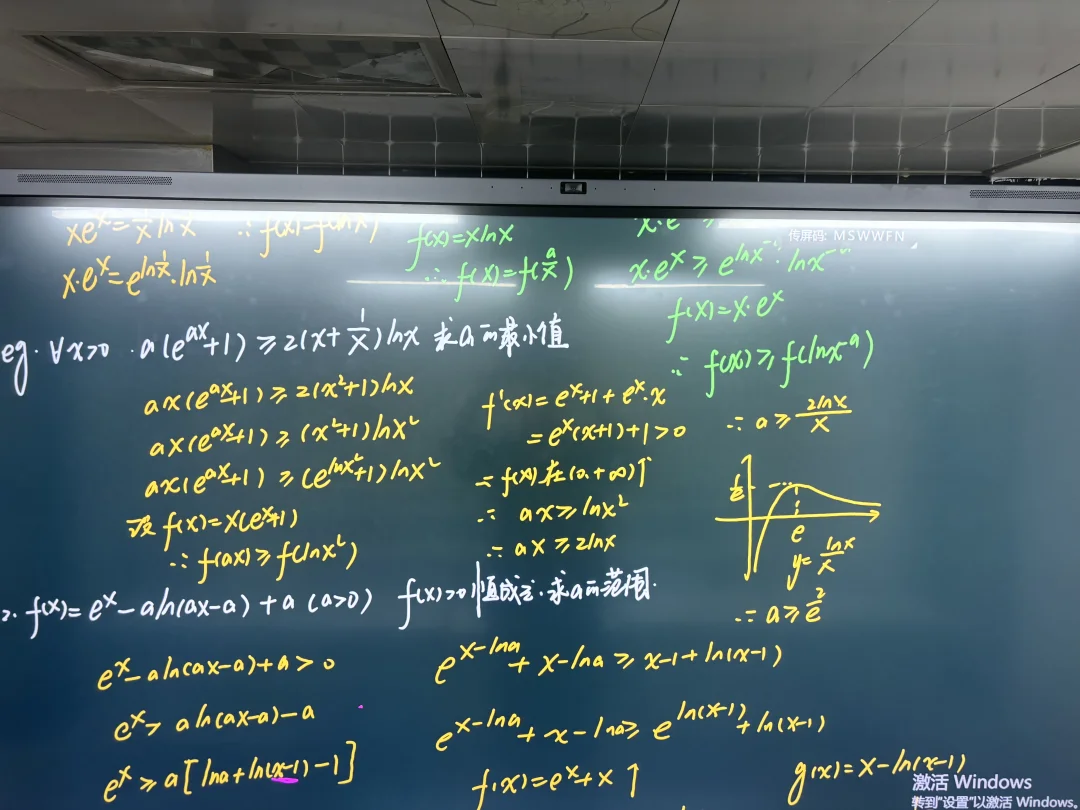 xe^x = 1/x ln x
∴ f(x)=f(ln 1/x)
x·e^x = e^{ln 1/x}·ln 1/x
f(x)=xlnx
∴ f(x)=f(a/x)
x·e^x ≥
传屏码: MSWWFN
x·e^x ≥ e^{lnx^{-a}}·lnx^{-a}
f(x)=x·e^x
∴ f(x)≥f(lnx^{-a})
eg. ∀x>0 . a(e^{ax}+1) ≥ 2(x+1/x)lnx 求a的最小值
ax(e^{ax}+1) ≥ 2(x²+1)lnx
ax(e^{ax}+1) ≥ (x²+1)lnx²
ax(e^{ax}+1) ≥ (e^{lnx²}+1)lnx²
设 f(x)=x(e^x+1)
∴ f(ax) ≥ f(lnx²)
f'(x)=e^x+1+e^x·x
=e^x(x+1)+1>0
∴ f(x)在(0,+∞)↑
∴ ax ≥ lnx²
∴ ax ≥ 2lnx
∴ a ≥ 2lnx/x
1/e
e
y=lnx/x
∴ a ≥ 2/e
2. f(x)=e^x-aln(ax-a)+a (a>0) f(x)>0恒成立.求a的范围.
e^x-aln(ax-a)+a>0
e^x>aln(ax-a)-a
e^x ≥ a[lna+ln(x-1)-1]
e^{x-lna}+x-lna ≥ x-1+ln(x-1)
e^{x-lna}+x-lna ≥ e^{ln(x-1)}+ln(x-1)
f(x)=e^x+x↑
g(x)=x-ln(x-1)
激活 Windows
转到"设置"以激活 Windows